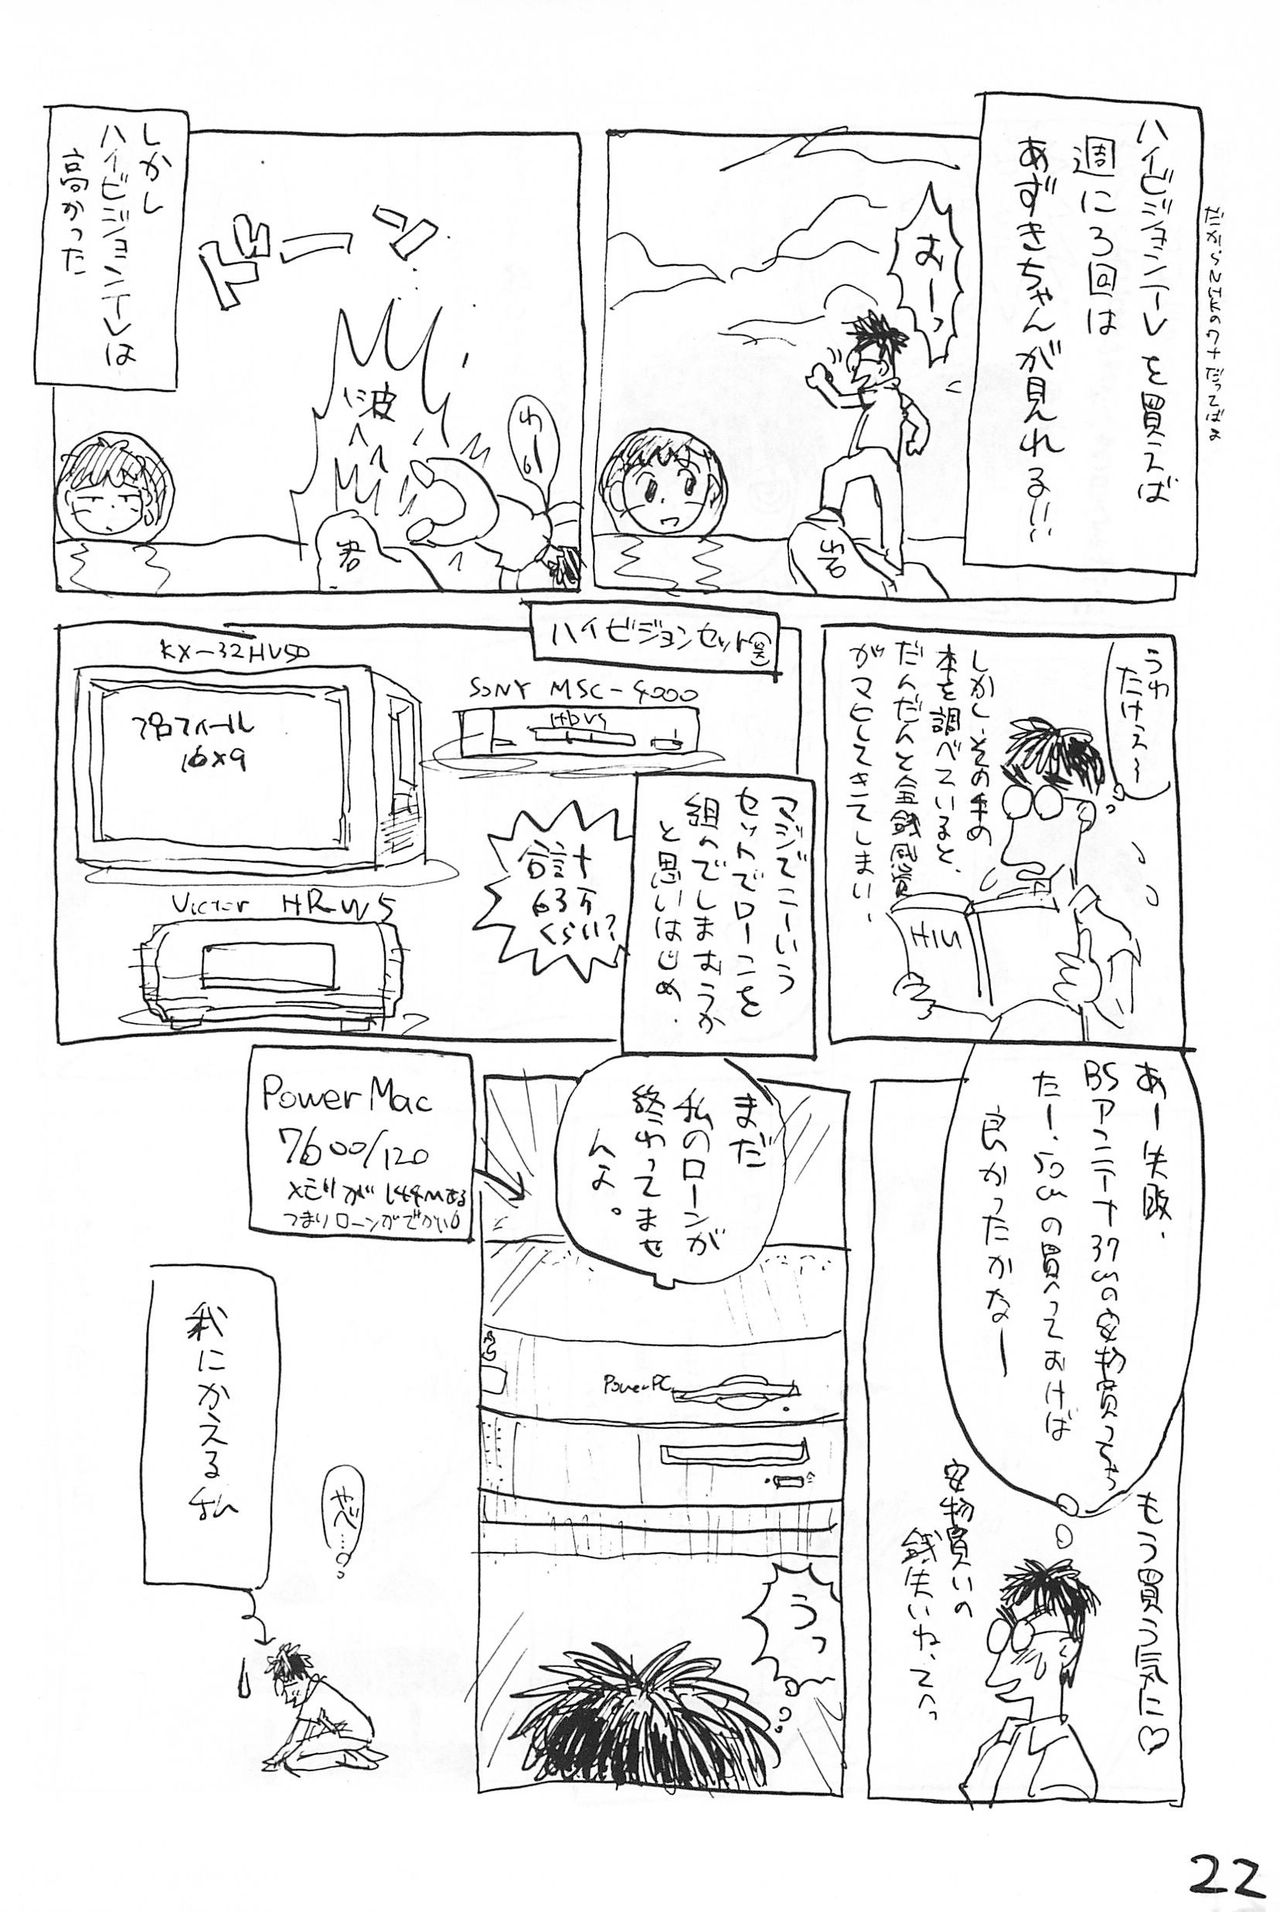 だからNHKのワナだってばよ
ハイビジョンテレを買えば
週に3回は
あずきちゃんが見れる!!
おーっ
岩
しかし
ハイビジョンテレは
高かった
ドーン
波
わー
岩
うわ
たけえ〜
しかし、その手の
本を調べていると、
だんだんと金銭感覚
がマヒしてきてしまい、
HIVI
ハイビジョンセット(笑)
KX-32HV50
プロフィール
16×9
SONY MSC-4000
HDVS
Victor HR-W5
合計
63万
くらい?
マジでこーいう
セットでローンを
組んでしまおうか
と思いはじめ、
あー失敗、
BSアンテナ37cmの安物買っちゃっ
たー、50cmの買っておけば
良かったかなー
もう買う気に♡
安物買いの
銭失いね、てへっ
まだ
私のローンが
終わってませ
んよ。
Power Mac
7600/120
メモリが144Mある
つまりローンがでかい
PowerPC
うっ
我にかえる私
やべ…
22